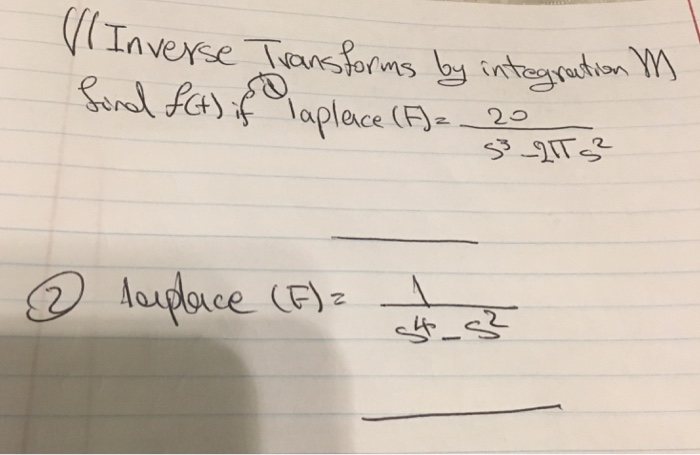 Inverse Transforms by integration
find f(t) if ① laplace (F) = 20 / s³ - 2π s²
② laplace (F) = 1 / s⁴ - s²